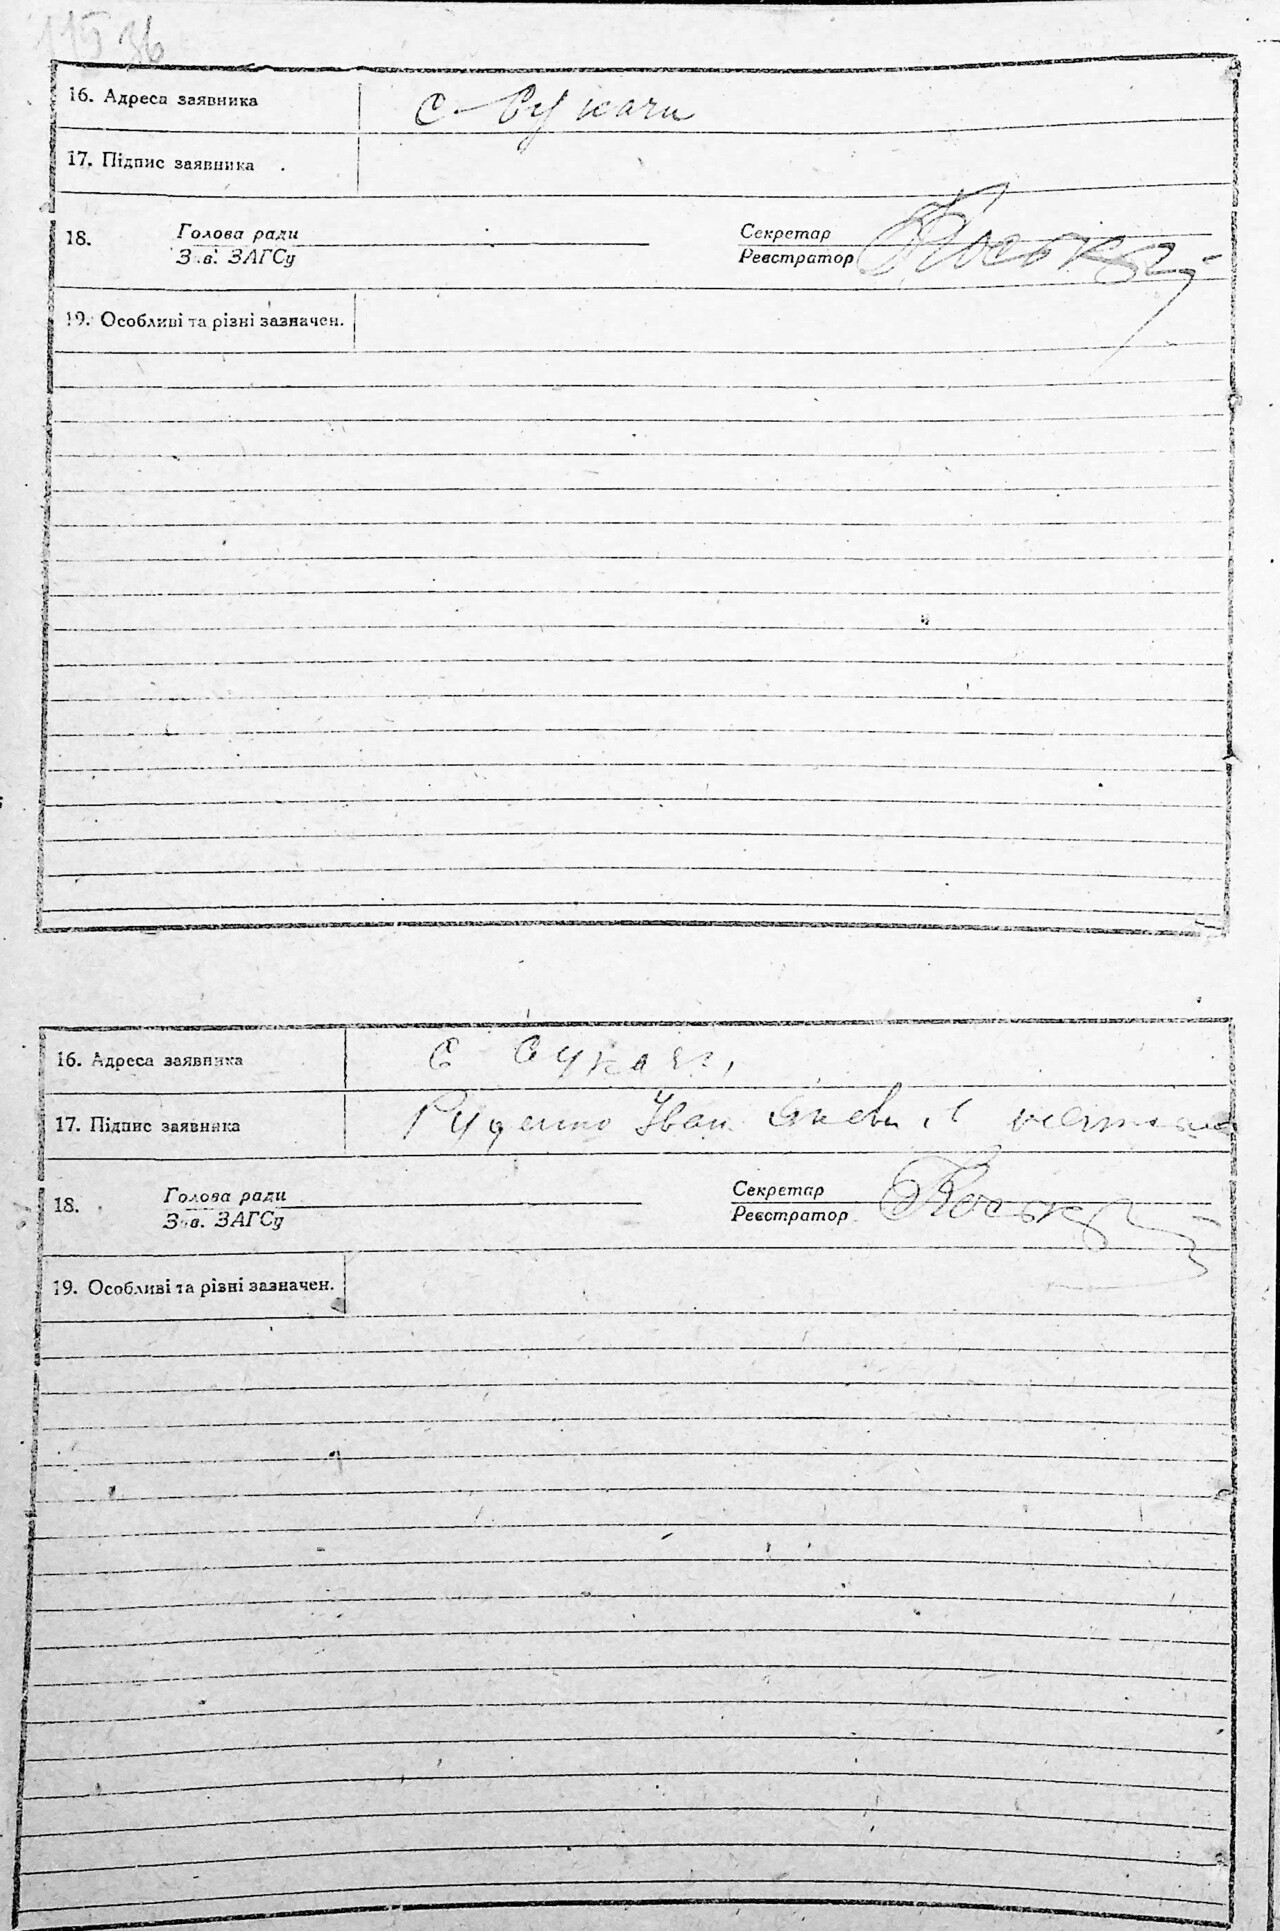 115 36
16. Адреса заявника с. Букачи
17. Підпис заявника
18. Голова ради Секретар
Зав. ЗАГСу Реєстратор
19. Особливі та різні зазначен.
16. Адреса заявника с Букачи
17. Підпис заявника Іван
18. Голова ради Секретар
Зав. ЗАГСу Реєстратор
19. Особливі та різні зазначен.